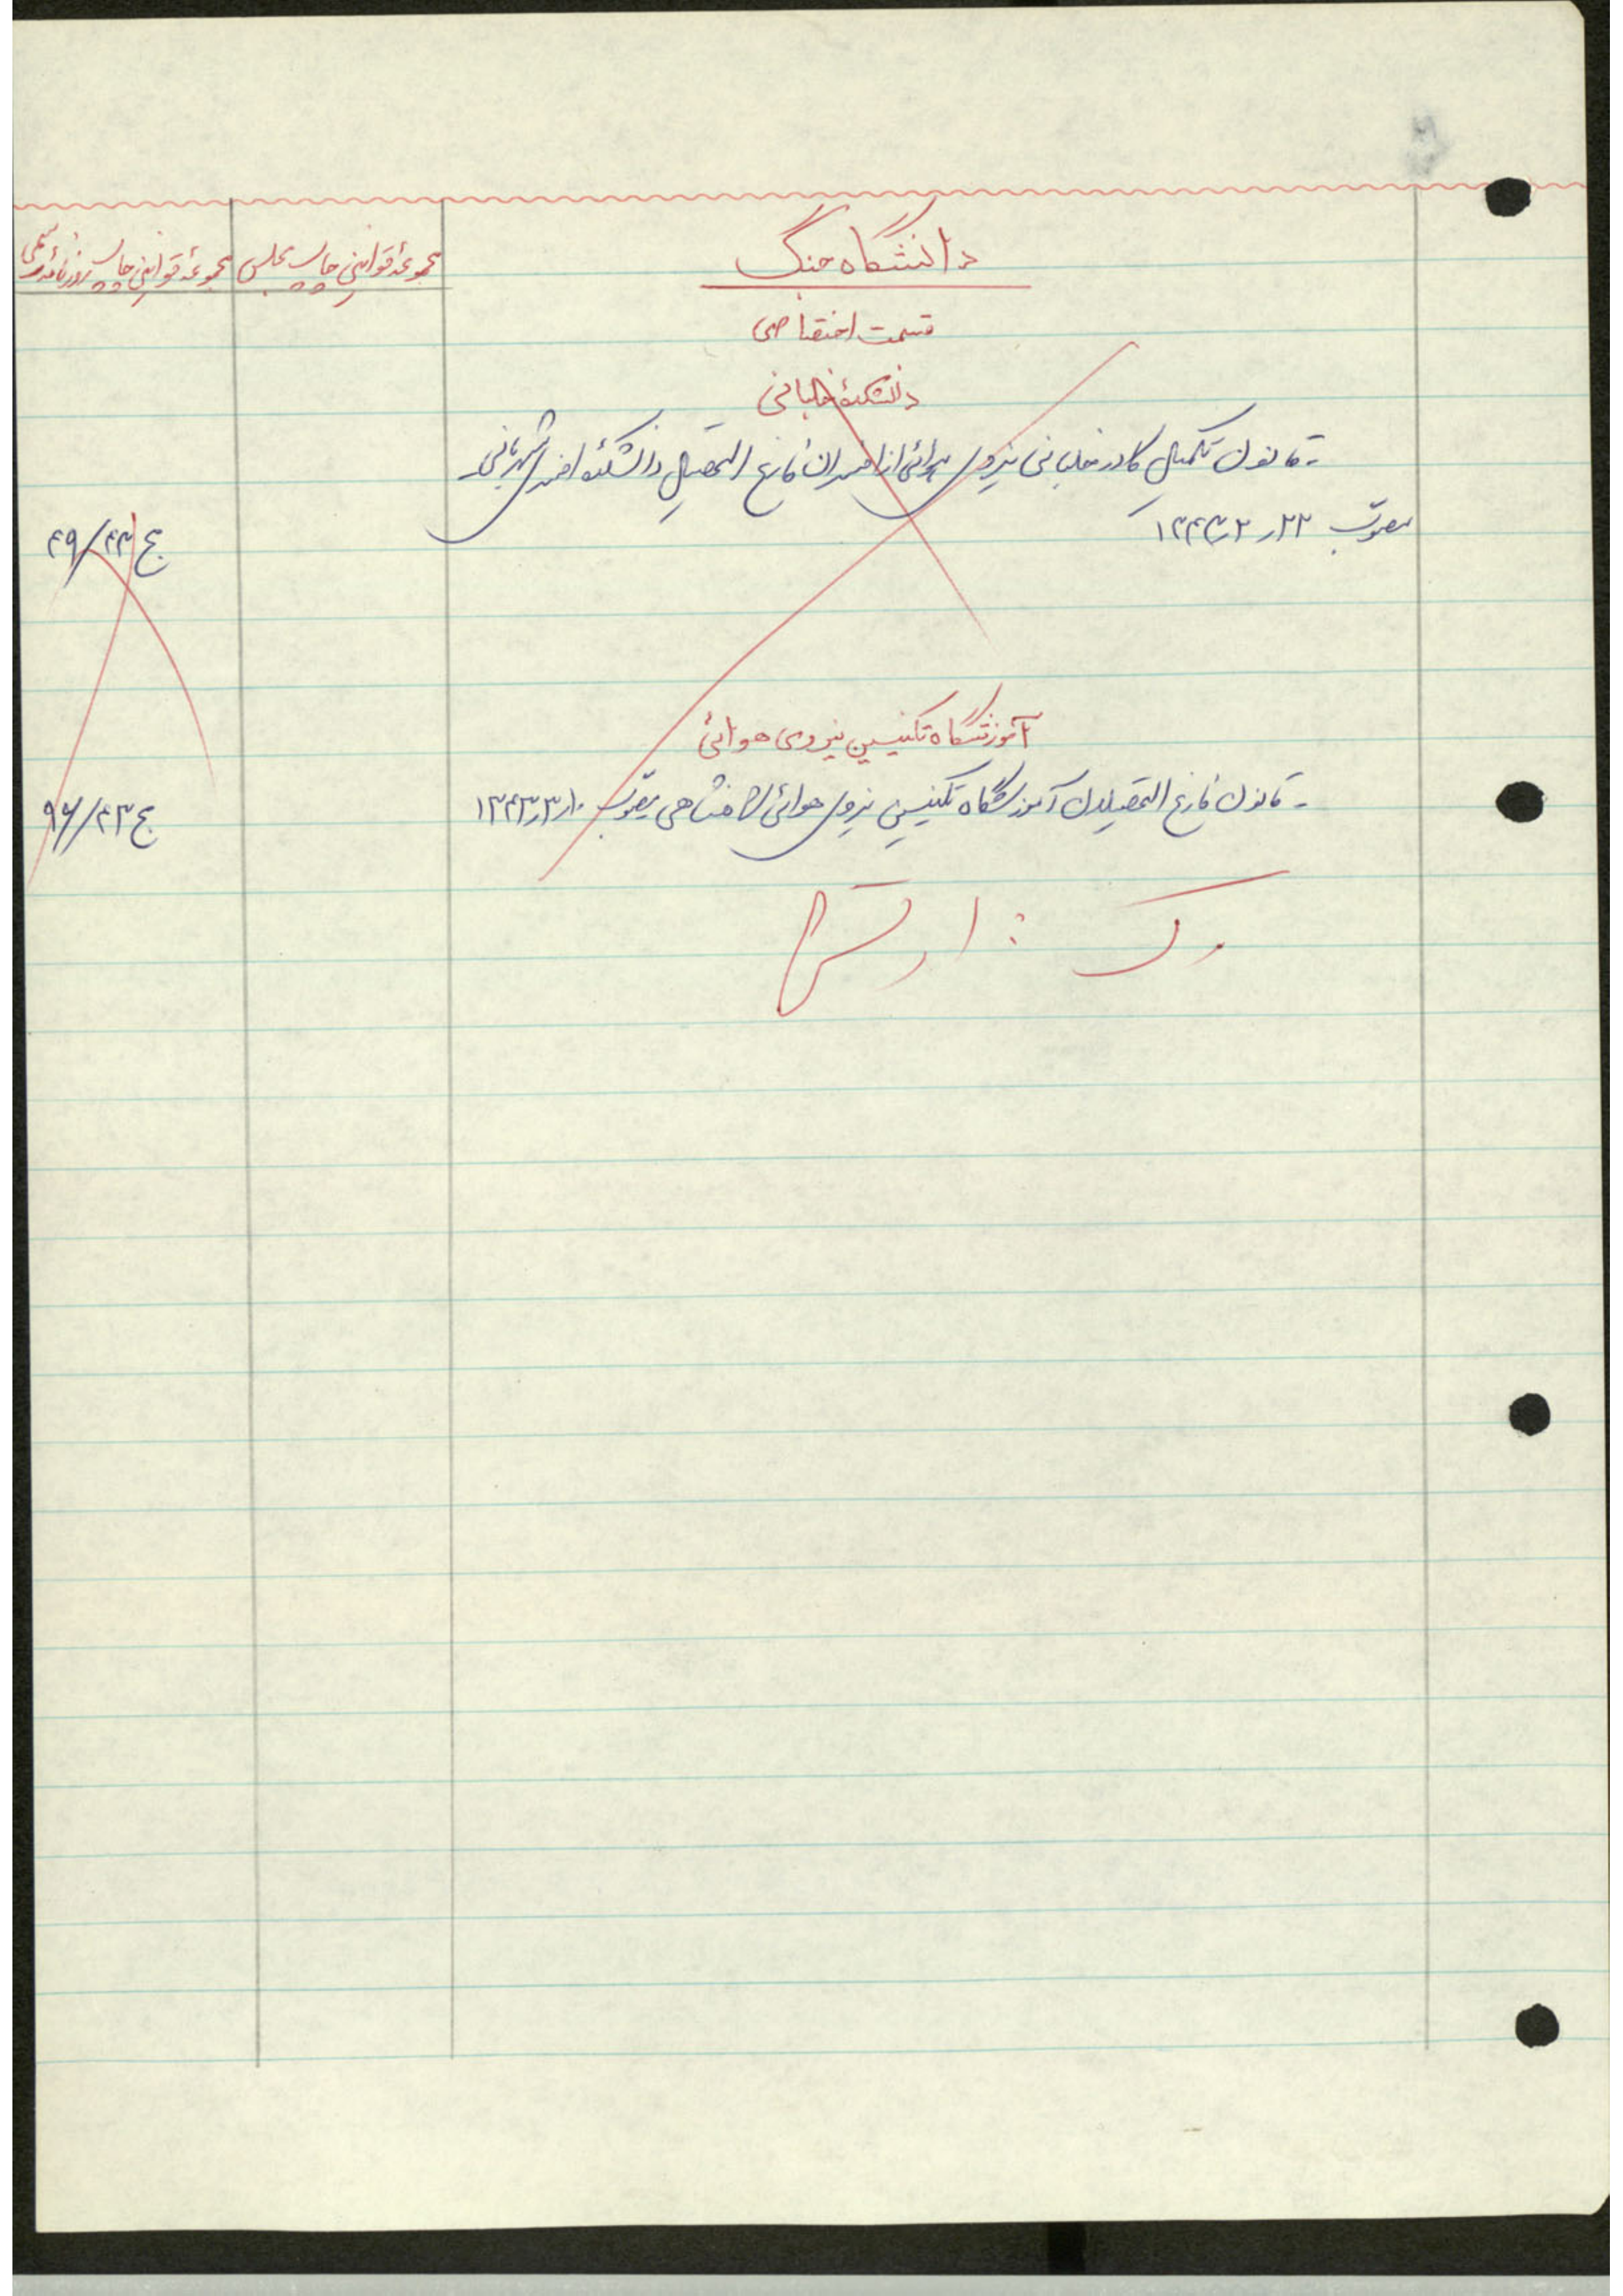 دانشگاه جنگ
مجموعهٔ قوانین چاپ مجلس
مجموعهٔ قوانین چاپ روزنامه رسمی
قسمت اختصاصی
دانشکدهٔ خلبانی
- قانون تکمیل کادر خلبانی نیروی هوائی از افسران فارغ التحصیل دانشکدهٔ افسری شهربانی
مصوب ۲۲ر۲ر۱۳۴۳
ج ۴۳/۴۹
آموزشگاه تکنیسین نیروی هوائی
- قانون فارغ التحصیلان آموزشگاه تکنیسین نیروی هوائی شاهنشاهی مصوب ۱۰ر۳ر۱۳۴۳
ج ۴۳/۹۶
رک : ارتش